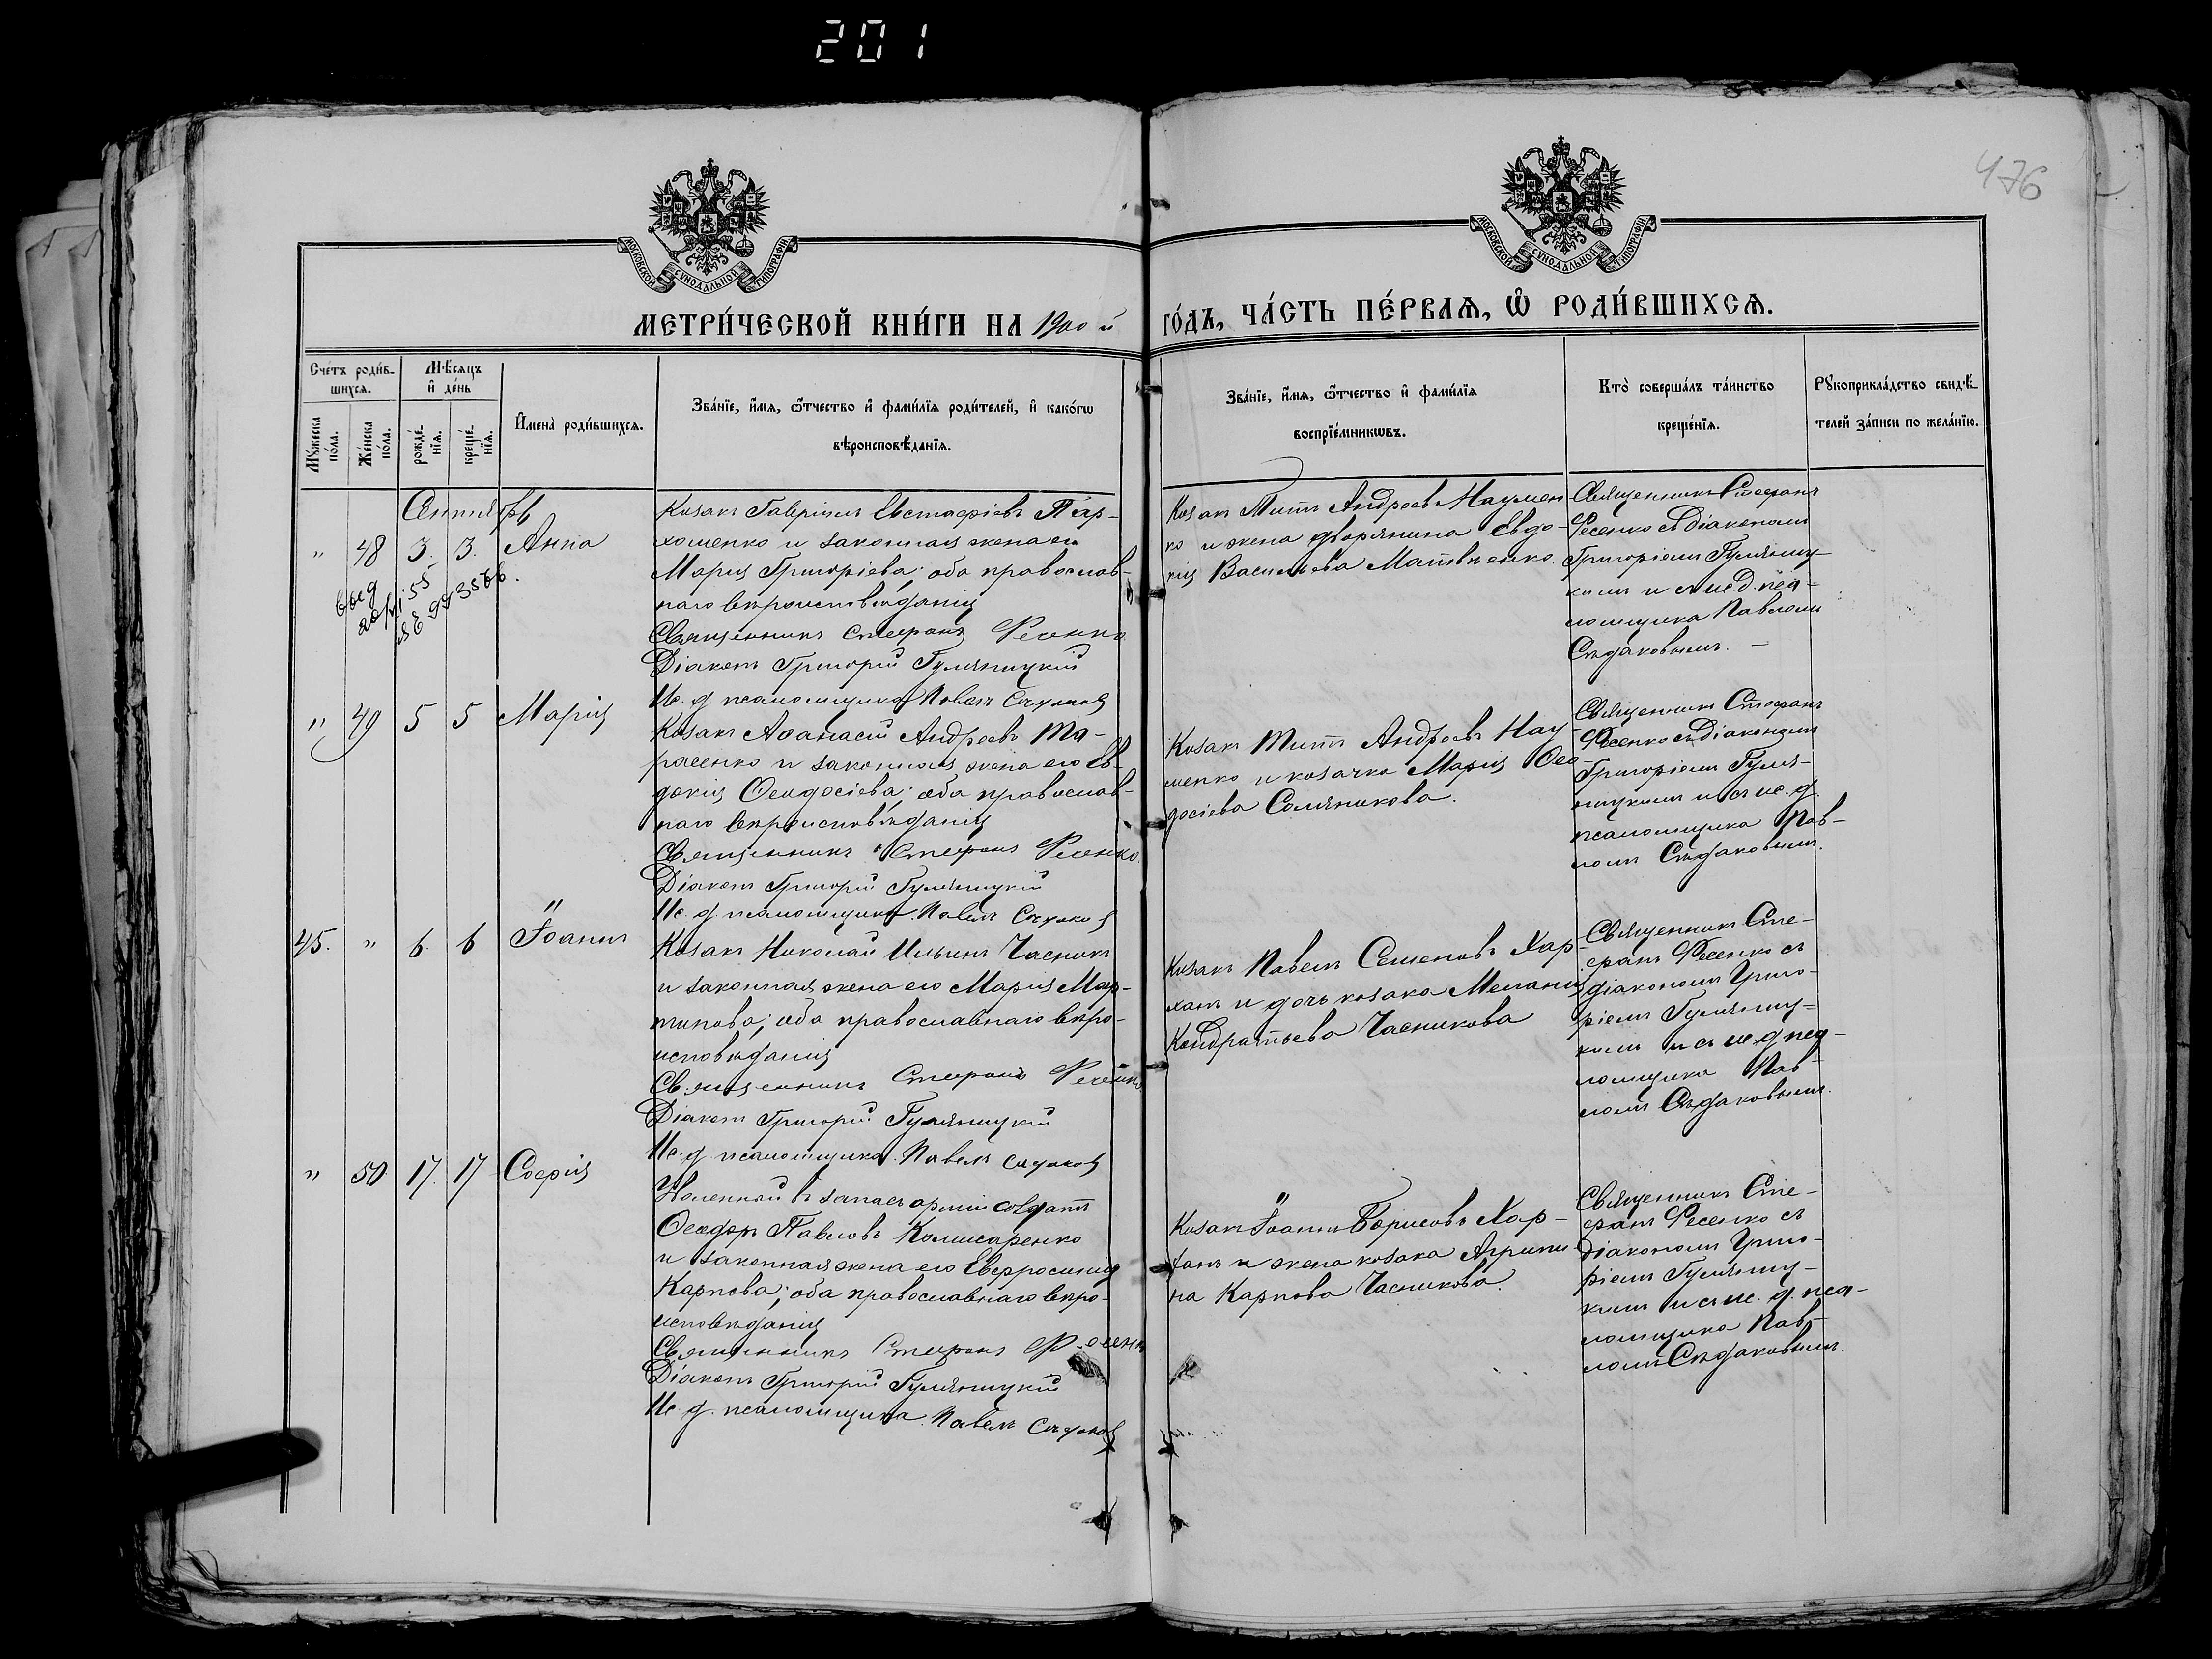 201
476
МОСКОВСКОЙ СѴНОДАЛЬНОЙ ТИПОГРАФІИ
МОСКОВСКОЙ СѴНОДАЛЬНОЙ ТИПОГРАФІИ
МЕТРИ́ЧЕСКОЙ КНИ́ГИ НА 1900 й го́дъ, ча́сть пе́рваѧ, ѽ роди́вшихсѧ.
Сче́тъ роди́в-
шихсѧ.
Мꙋ́жеска по́ла.
Же́нска по́ла.
Мѣ́сѧцъ
и҆ де́нь
рожде́-
нїѧ.
креще́-
нїѧ.
И҆мена̀ роди́вшихсѧ.
Зва́нїе, и҆́мѧ, ѻ҆́тчество и҆ фами́лїѧ роди́телей, и҆ како́гѡ
вѣроисповѣ́данїѧ.
Зва́нїе, и҆́мѧ, ѻ҆́тчество и҆ фами́лїѧ
воспрїе́мникѡвъ.
Кто̀ соверша́лъ та́инство
креще́нїѧ.
Рꙋкоприкла́дство свидѣ́-
телей за́писи по жела́нїю.
Сентябрь
" 48 3. 3. Анна
Козакъ Гавріилъ Евстафіевъ Пар-
хоменко и законная жена его
Марія Григорьева; оба православ-
наго вѣроисповѣданія
Священникъ Стефанъ Фесенко
Діаконъ Григорій Гуляницкій
Ис. д. псаломщика Павелъ Сѣдаковъ
Козакъ Титъ Андреевъ Наумен-
ко и жена дворянина Евдо-
кія Васильева Матвѣенко.
Священникъ Стефанъ
Фесенко съ діакономъ
Григоріемъ Гуляниц-
кимъ и съ ис. д. пса-
ломщика Павломъ
Сѣдаковымъ. —
" 49 5 5 Марія
Козакъ Аѳанасій Андреевъ Та-
расенко и законная жена его Ев-
докія Ѳеодосіева; оба православ-
наго вѣроисповѣданія
Священникъ Стефанъ Фесенко.
Діаконъ Григорій Гуляницкій
Ис. д. псаломщика. Павелъ Сѣдаковъ
Козакъ Титъ Андреевъ Нау-
менко и козачка Марія Ѳео-
досіева Соляникова.
Священникъ Стефанъ
Фесенко съ Діакономъ
Григоріемъ Гуля-
ницкимъ и съ ис. д.
псаломщика Пав-
ломъ Сѣдаковымъ.
45. " 6. 6 Іоаннъ
Козакъ Николай Ильинъ Часникъ
и законная жена его Марія Мар-
тинова; оба православнаго вѣро-
исповѣданія
Священникъ Стефанъ Фесенко
Діаконъ Григорій Гуляницкій
Ис. д. псаломщика. Павелъ Сѣдаковъ
Козакъ Павелъ Семеновъ Хар-
ханъ и дочь козака Меланія
Кондратьева Часникова
Священникъ Сте-
фанъ Фесенко съ
діакономъ Григо-
ріемъ Гуляниц-
кимъ и съ ис. д. пса-
ломщика Пав-
ломъ Сѣдаковымъ.
" 50 17. 17 Софія
Уволенный въ запасъ арміи солдатъ
Ѳеодоръ Павловъ Комисаренко
и законная жена его Евфросинія
Карпова; оба православнаго вѣро-
исповѣданія
Священникъ Стефанъ Фесенко
Діаконъ Григорій Гуляницкій
Ис. д. псаломщика. Павелъ Сѣдаковъ
Козакъ Іоаннъ Борисовъ Хар-
ханъ и жена козака Агрипи-
на Карпова Часникова.
Священникъ Сте-
фанъ Фесенко съ
Діакономъ Григо-
ріемъ Гуляниц-
кимъ и съ ис. д. пса-
ломщика Пав-
ломъ Сѣдаковымъ.